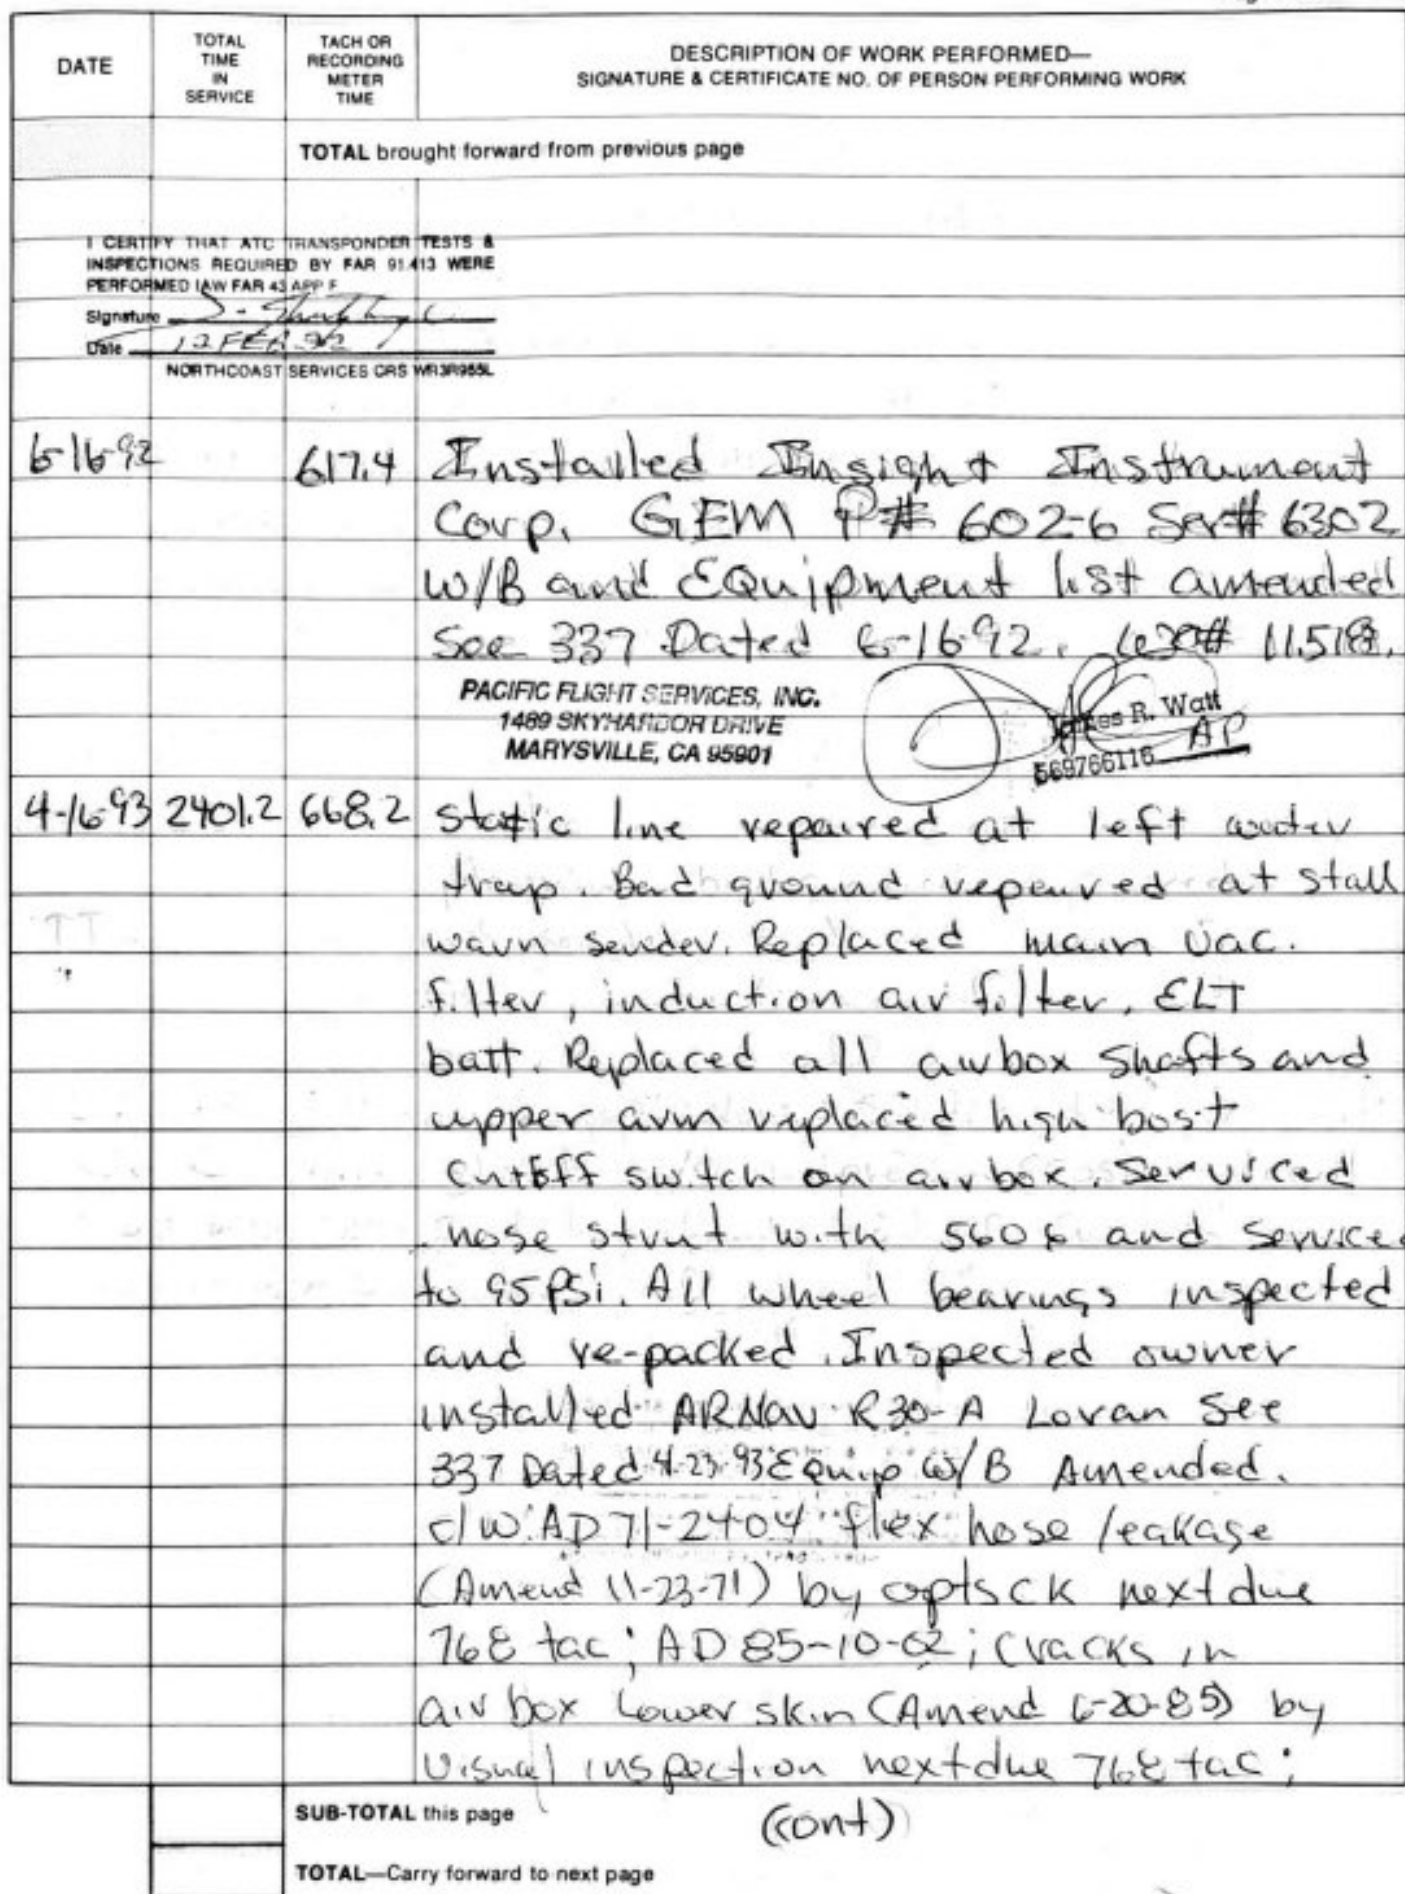 DATE
TOTAL TIME IN SERVICE
TACH OR RECORDING METER TIME
DESCRIPTION OF WORK PERFORMED—
SIGNATURE & CERTIFICATE NO. OF PERSON PERFORMING WORK
TOTAL brought forward from previous page
I CERTIFY THAT ATC TRANSPONDER TESTS &
INSPECTIONS REQUIRED BY FAR 91.413 WERE
PERFORMED IAW FAR 43 APP F
Signature
Date 12 FEB 92
NORTHCOAST SERVICES CRS WR3R955L
6-16-92 617.4 Installed Insight Instrument
Corp. GEM P# 602-6 Ser# 6302
W/B and Equipment list amended
See 337 Dated 6-16-92. # 11518.
PACIFIC FLIGHT SERVICES, INC.
1489 SKYHARBOR DRIVE
MARYSVILLE, CA 95901
James R. Watt
569766116 AP
4-16-93 2401.2 668.2 Static line repaired at left water
trap. Bad ground repaired at stall
warn sender. Replaced main vac.
filter, induction air filter, ELT
batt. Replaced all airbox shafts and
upper arm replaced high bost
Cutoff switch on air box. Serviced
nose strut with 5606 and serviced
to 95 PSi. All wheel bearings inspected
and re-packed. Inspected owner
installed ARNav R30-A Loran See
337 Dated 4-23-93 Equip W/B Amended.
c/w AD 71-2404 flex hose leakage
(Amend 11-23-71) by optsck next due
768 tac; AD 85-10-02; Cracks in
air box Lower skin (Amend 6-20-85) by
Visual inspection next due 768 tac;
SUB-TOTAL this page
(cont)
TOTAL—Carry forward to next page